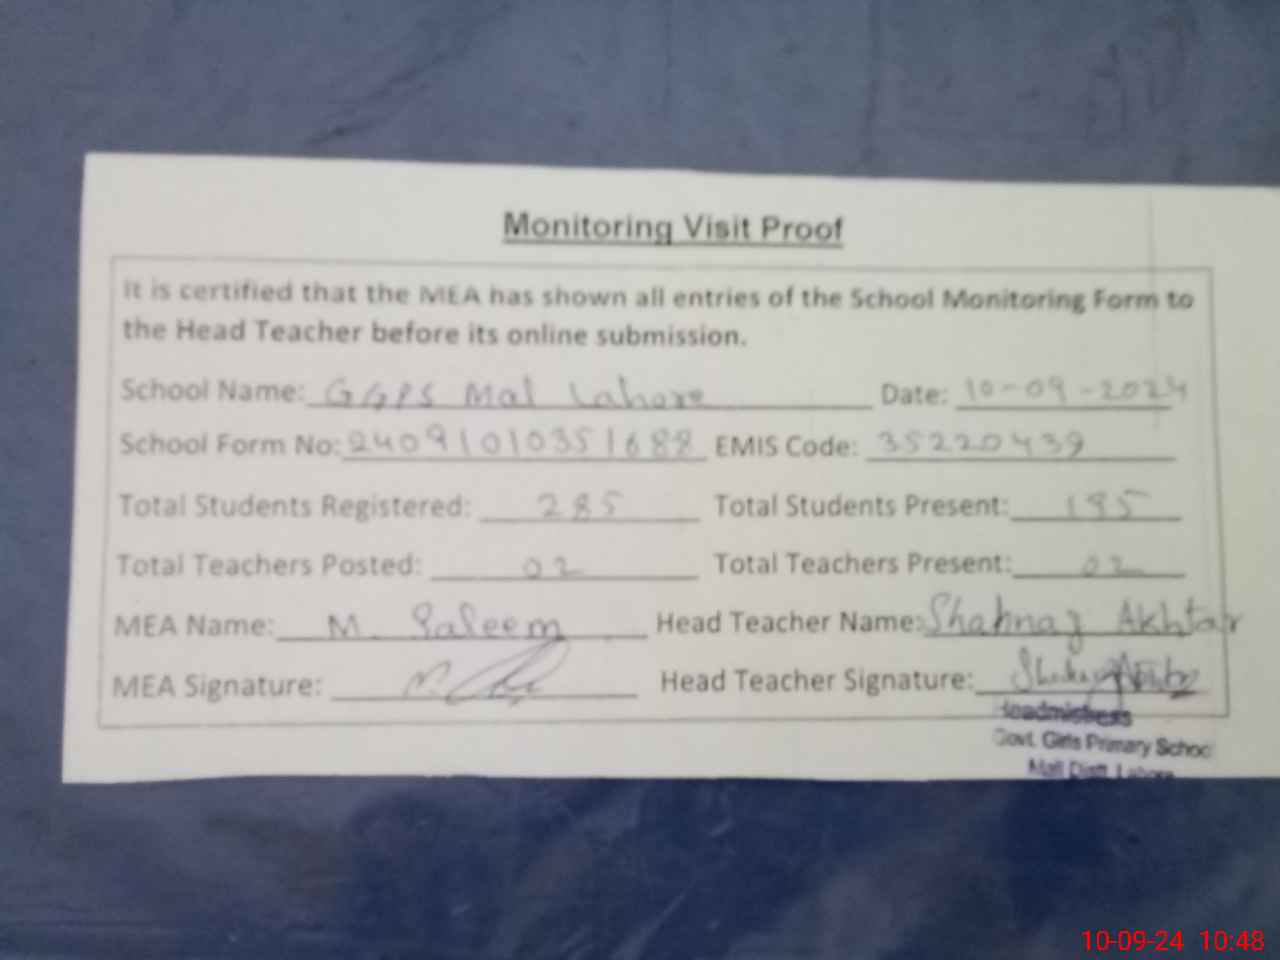 Monitoring Visit Proof
It is certified that the MEA has shown all entries of the School Monitoring Form to
the Head Teacher before its online submission.
School Name: GGPS Mal Lahore Date: 10-09-2024
School Form No: 24091010351688 EMIS Code: 35220439
Total Students Registered: 285 Total Students Present: 195
Total Teachers Posted: 02 Total Teachers Present: 02
MEA Name: M. Saleem Head Teacher Name: Shahnaz Akhtar
MEA Signature: Head Teacher Signature:
Headmistress
Govt. Girls Primary School
Mall Distt. Lahore
10-09-24 10:48